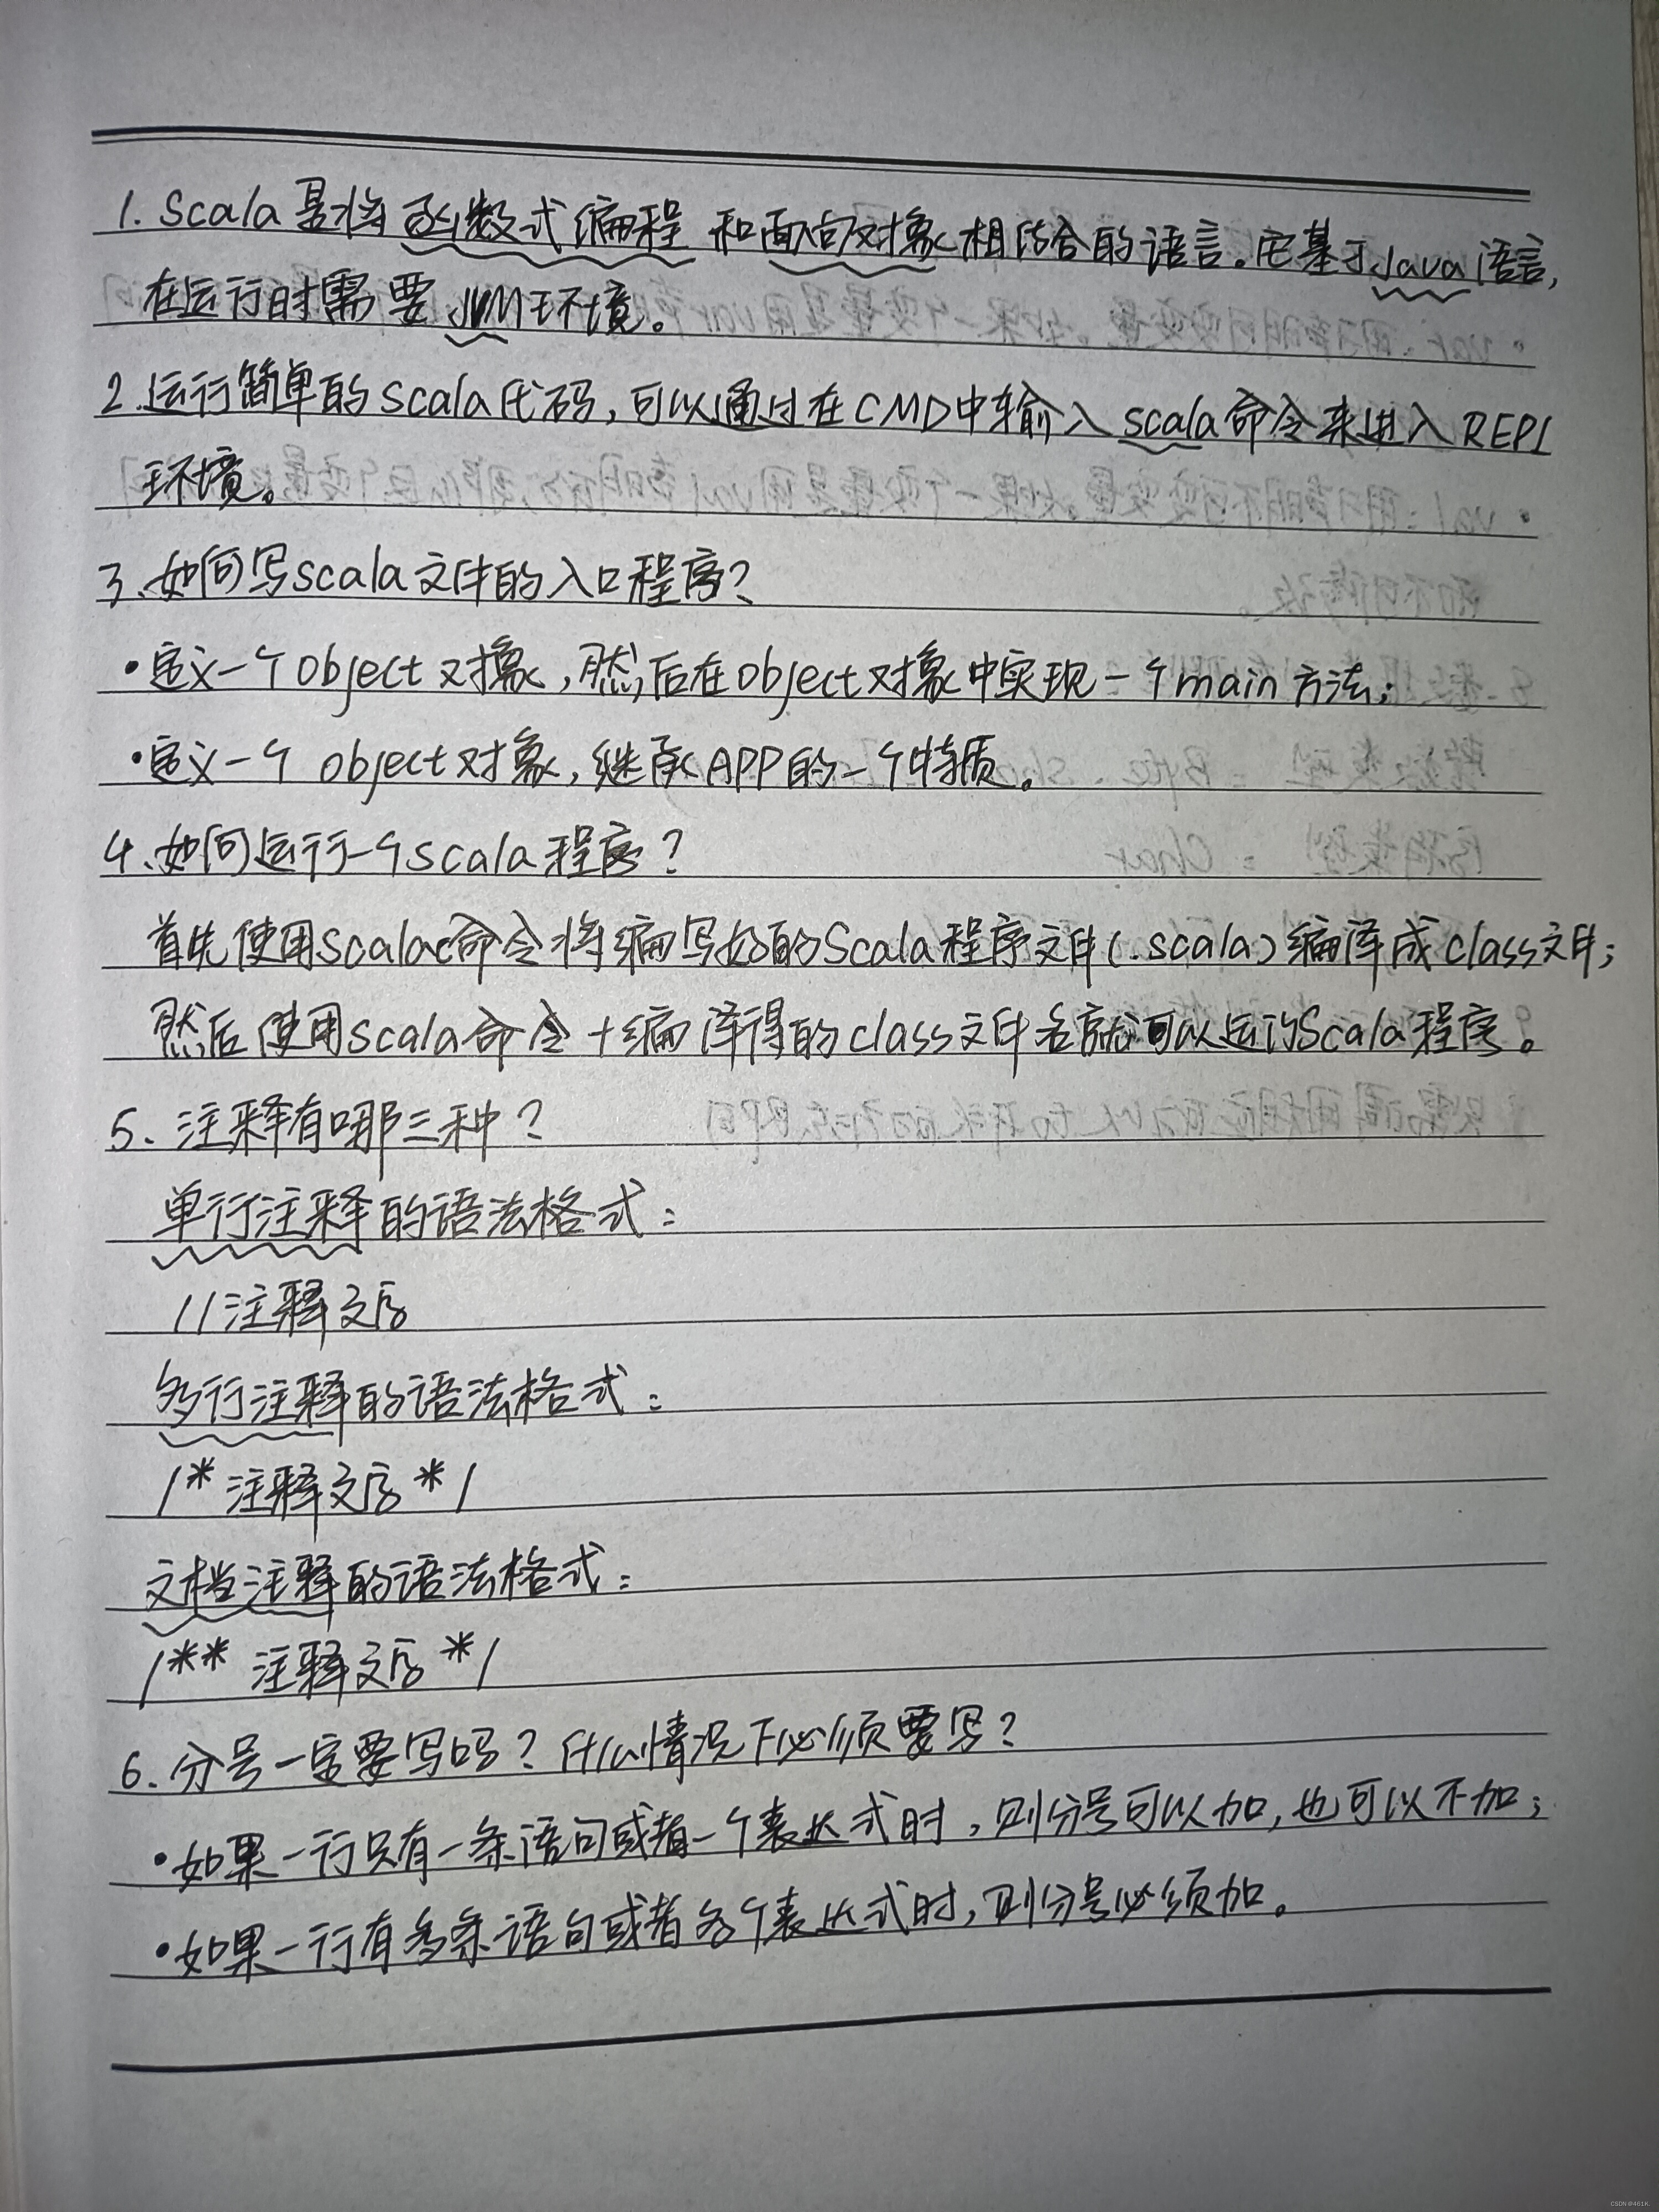 1. Scala是将函数式编程和面向对象相结合的语言。它基于Java语言,
在运行时需要JVM环境。
2.运行简单的Scala代码,可以通过在CMD中输入scala命令来进入REPL
环境。
3、如何写scala文件的入口程序?
•定义一个object对象,然后在object对象中实现一个main方法;
•定义一个object对象,继承APP的一个特质。
4、如何运行一个scala程序?
首先使用scalac命令将编写好的Scala程序文件(.scala)编译成class文件;
然后使用scala命令+编译得的class文件名就可以运行Scala程序。
5、注释有哪三种?
单行注释的语法格式:
//注释文字
多行注释的语法格式:
/*注释文字*/
文档注释的语法格式:
/** 注释文字 */
6、分号一定要写吗?什么情况下必须要写?
•如果一行只有一条语句或者一个表达式时,则分号可以加,也可以不加;
•如果一行有多条语句或者多个表达式时,则分号必须加。
CSDN @461K.